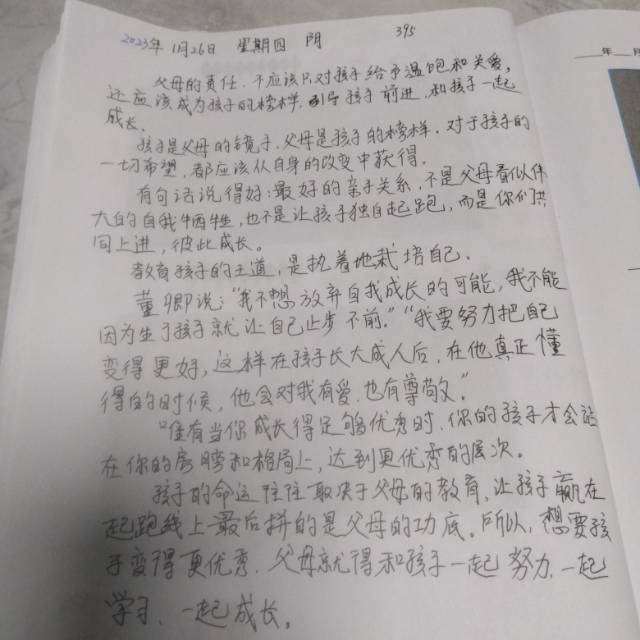 2023年 1月26日 星期四 阴 395
父母的责任,不应该只对孩子给予温饱和关爱,
还应该成为孩子的榜样,引导孩子前进,和孩子一起
成长。
孩子是父母的镜子,父母是孩子的榜样。对于孩子的
一切希望,都应该从自身的改变中获得。
有句话说得好:最好的亲子关系,不是父母看似伟
大的自我牺牲,也不是让孩子独自起跑,而是你们共
同上进,彼此成长。
教育孩子的王道,是执着地栽培自己。
董卿说:“我不想放弃自我成长的可能,我不能
因为生了孩子就让自己止步不前。”“我要努力把自己
变得更好,这样在孩子长大成人后,在他真正懂
得的时候,他会对我有爱,也有尊敬。”
唯有当你成长得足够优秀时,你的孩子才会站
在你的肩膀和格局上,达到更优秀的层次。
孩子的命运往往取决于父母的教育,让孩子赢在
起跑线上最后拼的是父母的功底。所以,想要孩
子变得更优秀,父母就得和孩子一起努力,一起
学习、一起成长。
年 月